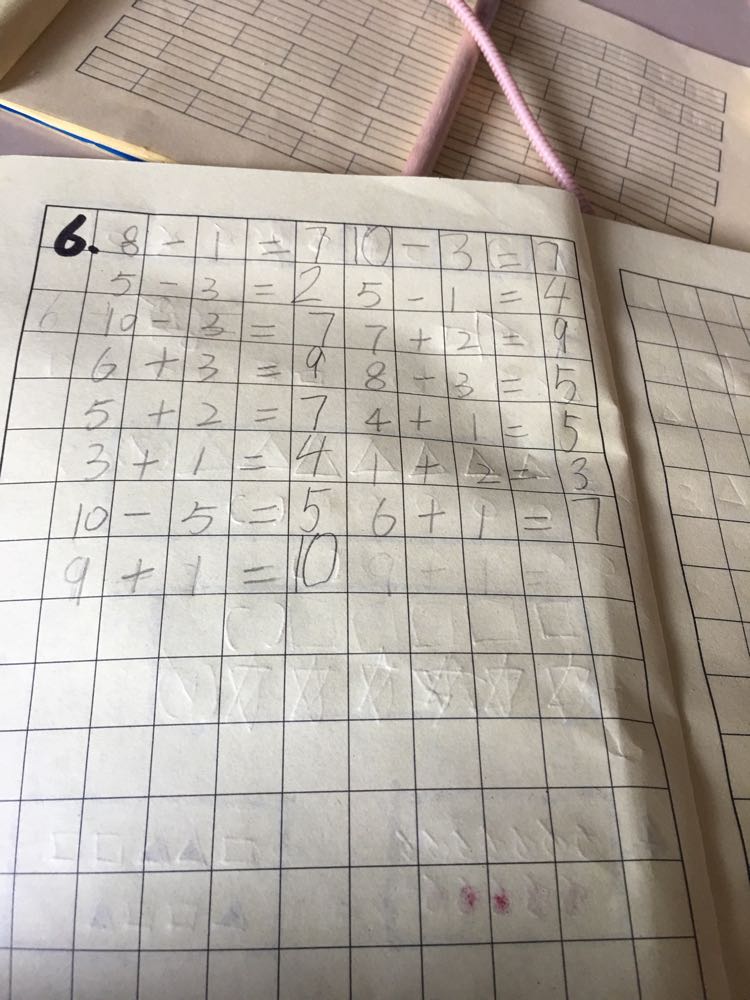 6. 8 - 1 = 7 10 - 3 = 7
5 - 3 = 2 5 - 1 = 4
10 - 3 = 7 7 + 2 = 9
6 + 3 = 9 8 - 3 = 5
5 + 2 = 7 4 + 1 = 5
3 + 1 = 4 1 + 2 = 3
10 - 5 = 5 6 + 1 = 7
9 + 1 = 10